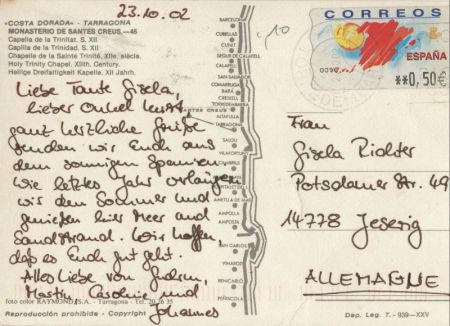 23.10.02
«COSTA DORADA» - TARRAGONA
MONASTERIO DE SANTES CREUS.—45
Capella de la Trinitat. S. XII
Capilla de la Trinidad. S. XII
Chapelle de la Sainte Trinité, XIIe. siècle.
Holy Trinity Chapel. XIIth. Century.
Heilige Dreifaltigkeit Kapelle. XII Jahrh.
Liebe Tante Gisela,
lieber Onkel Kurt,
ganz herzliche Grüße
senden wir Euch aus
dem sonnigen Spanien.
Wie letztes Jahr verlängern
wir den Sommer und
genießen hier Meer und
Sandstrand. Wir hoffen,
daß es Euch gut geht.
Alles Liebe von
Martin, Caroline und
Johannes
foto color RAYMOND, S.A. - Tarragona - Tel. 20 26 35
Reproducción prohibida - Copyright
BARCELONA
CUBELLAS
CUNIT
SEGUR DE CALAFELL
CALAFELL
SAN SALVADOR
COMARRUGA
BARÁ
CREIXELL
TORREDEMBARRA
SANTES CREUS
ALTAFULLA
TARRAGONA
SALOU
VILAFORTUNY
CAMBRILS
AMETLLA DE MAR
AMPOLLA
AMPOSTA
SAN CARLOS
VINAROZ
BENICARLO
PEÑISCOLA
CORREOS
ESPAÑA
**0,50€
Frau
Gisela Richter
Potsdamer Str. 49
14778 Jeserig
ALLEMAGNE
Dep. Leg. T. - 939—XXV